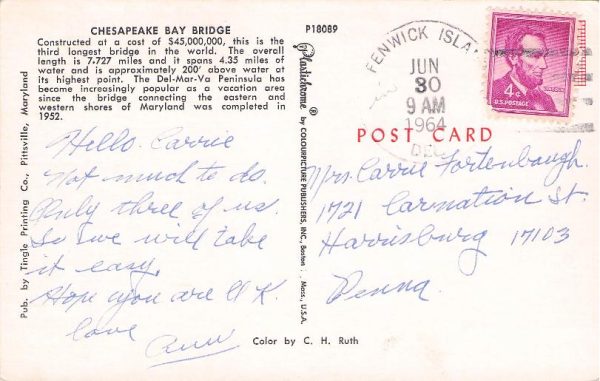 CHESAPEAKE BAY BRIDGE
Constructed at a cost of $45,000,000, this is the
third longest bridge in the world. The overall
length is 7.727 miles and it spans 4.35 miles of
water and is approximately 200' above water at
its highest point. The Del-Mar-Va Peninsula has
become increasingly popular as a vacation area
since the bridge connecting the eastern and
western shores of Maryland was completed in
1952.
Pub. by Tingle Printing Co., Pittsville, Maryland
Hello Carrie
Not much to do.
Only three of us.
So we will take
it easy.
Hope you are O K.
love
Ann
Color by C. H. Ruth
P18089
Plastichrome ®
by COLOURPICTURE PUBLISHERS, INC., Boston, Mass., U.S.A.
FENWICK ISLA
JUN
30
9 AM
1964
DEL
4¢
U.S. POSTAGE
POST CARD
Mrs. Carrie Fortenbaugh
1721 Carnation St.
Harrisburg 17103
Penna.